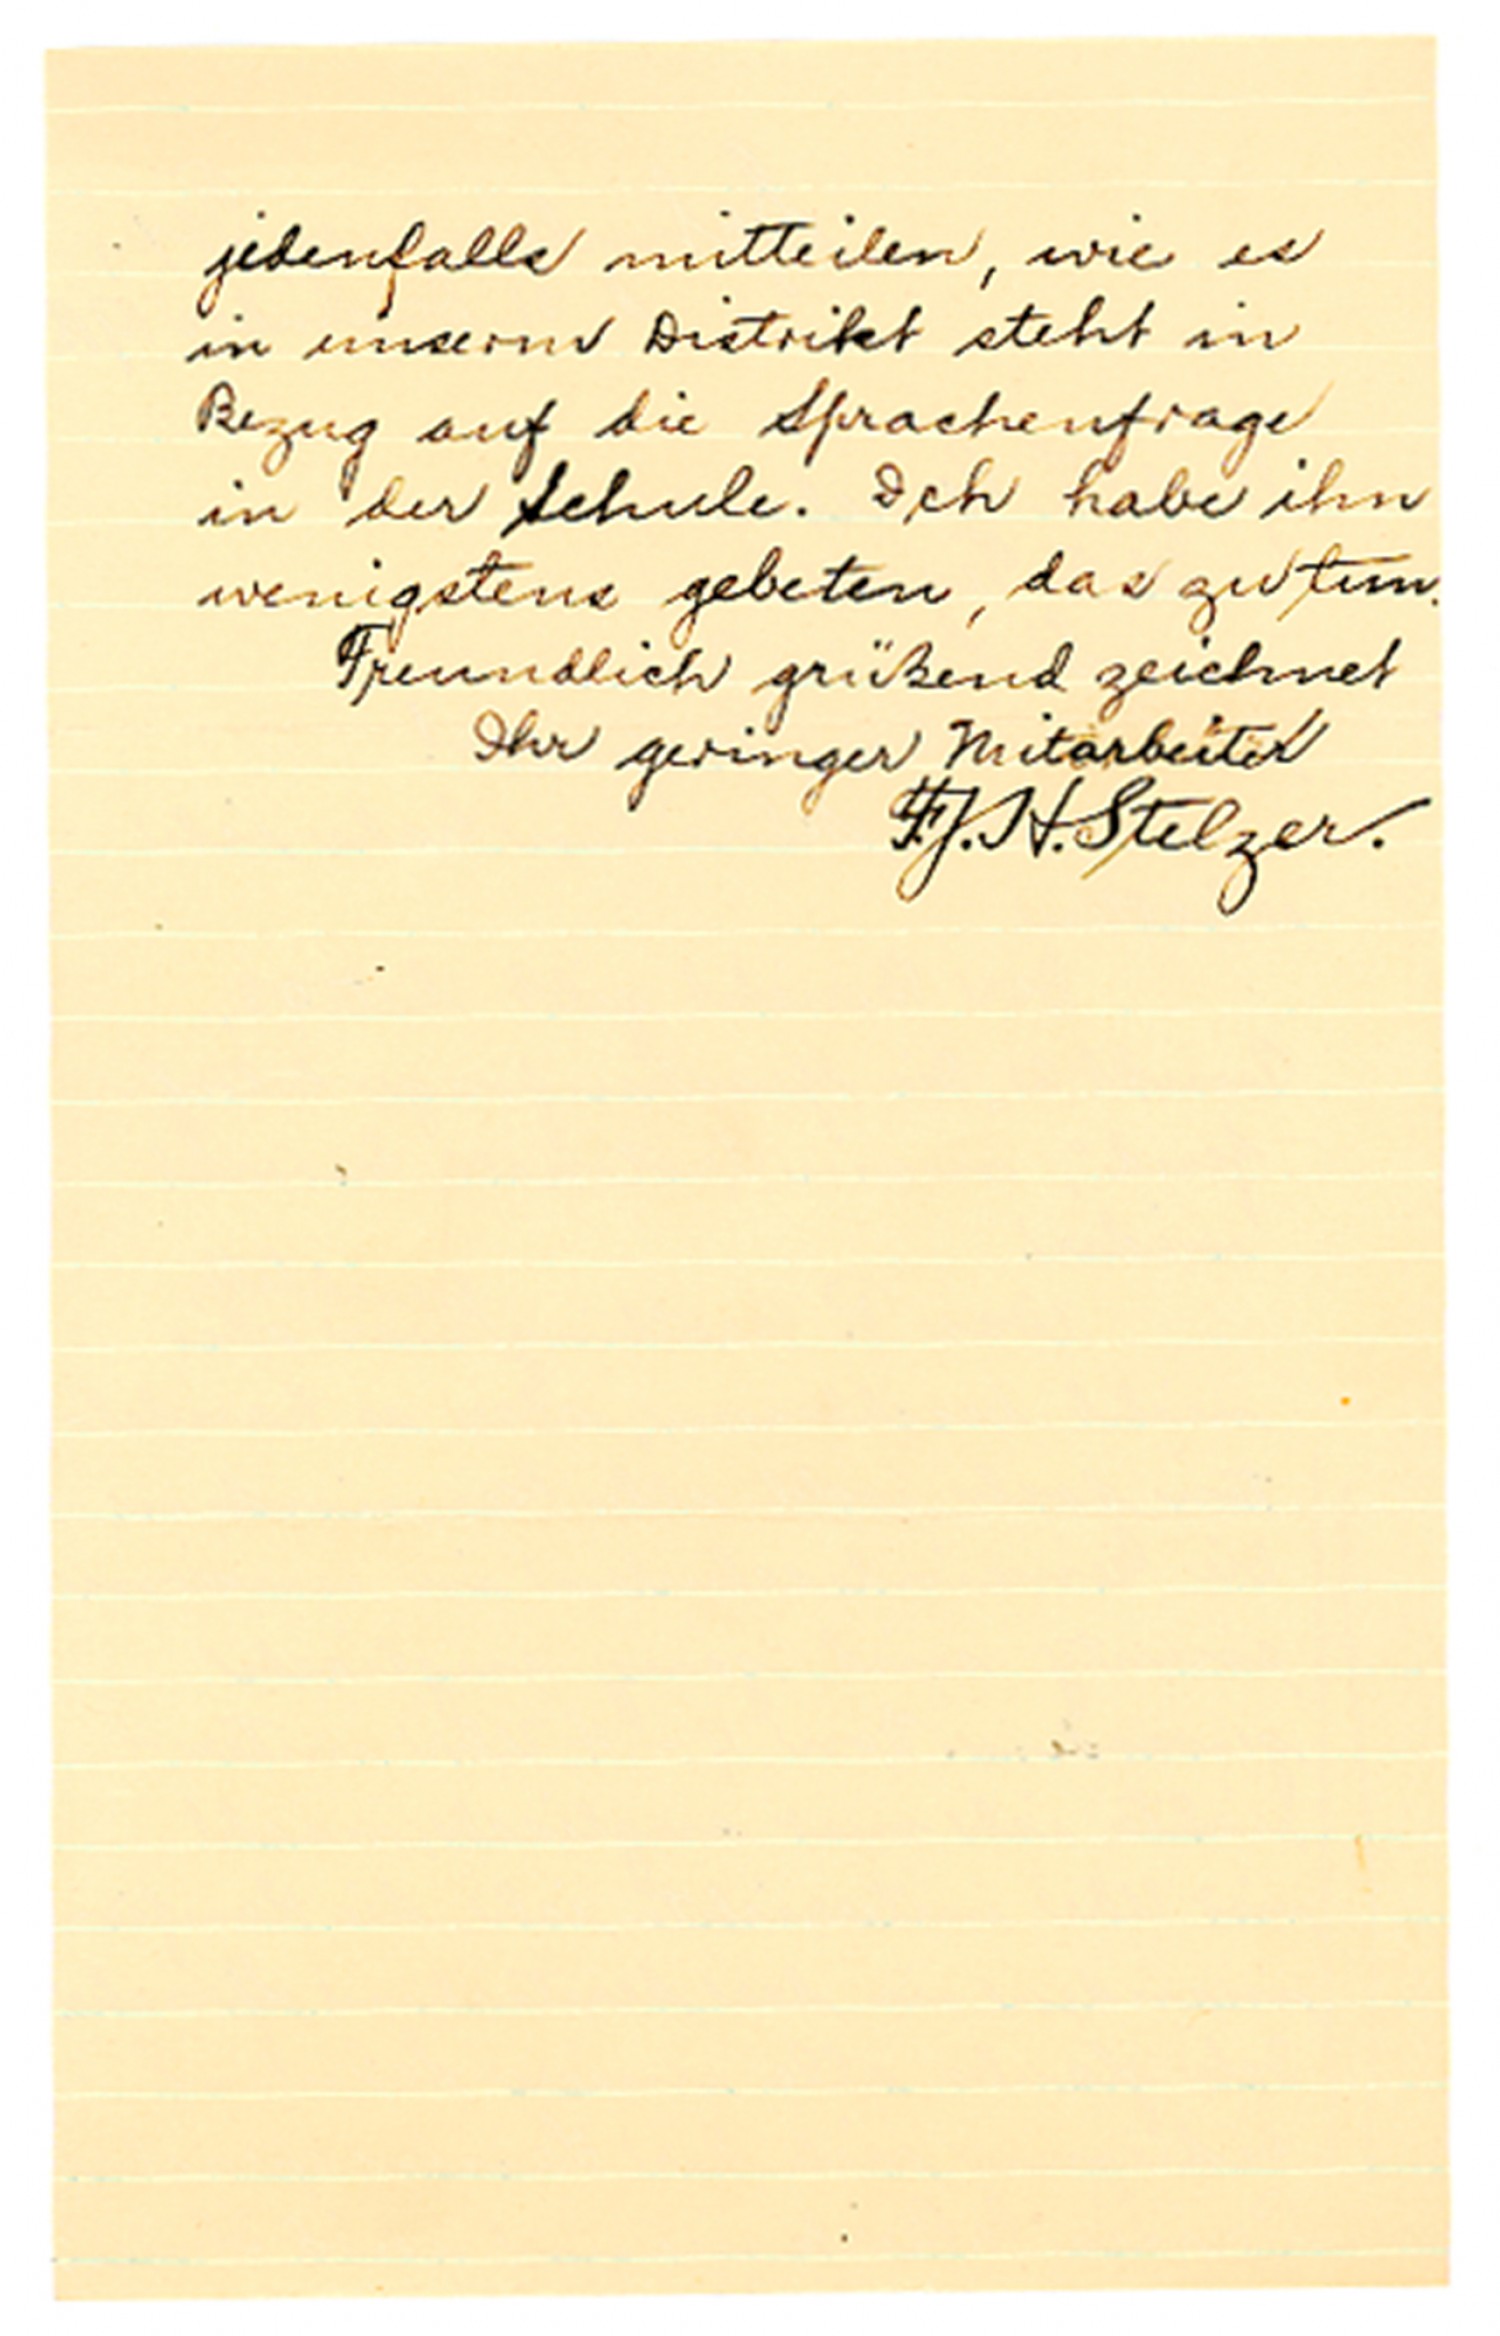 jedenfalls mitteilen, wie es
in unserm Distrikt steht in
Bezug auf die Sprachenfrage
in der Schule. Ich habe ihn
wenigstens gebeten, das zu tun.
Freundlich grüßend zeichnet
Ihr geringer Mitarbeiter
F.J.H. Stelzer.